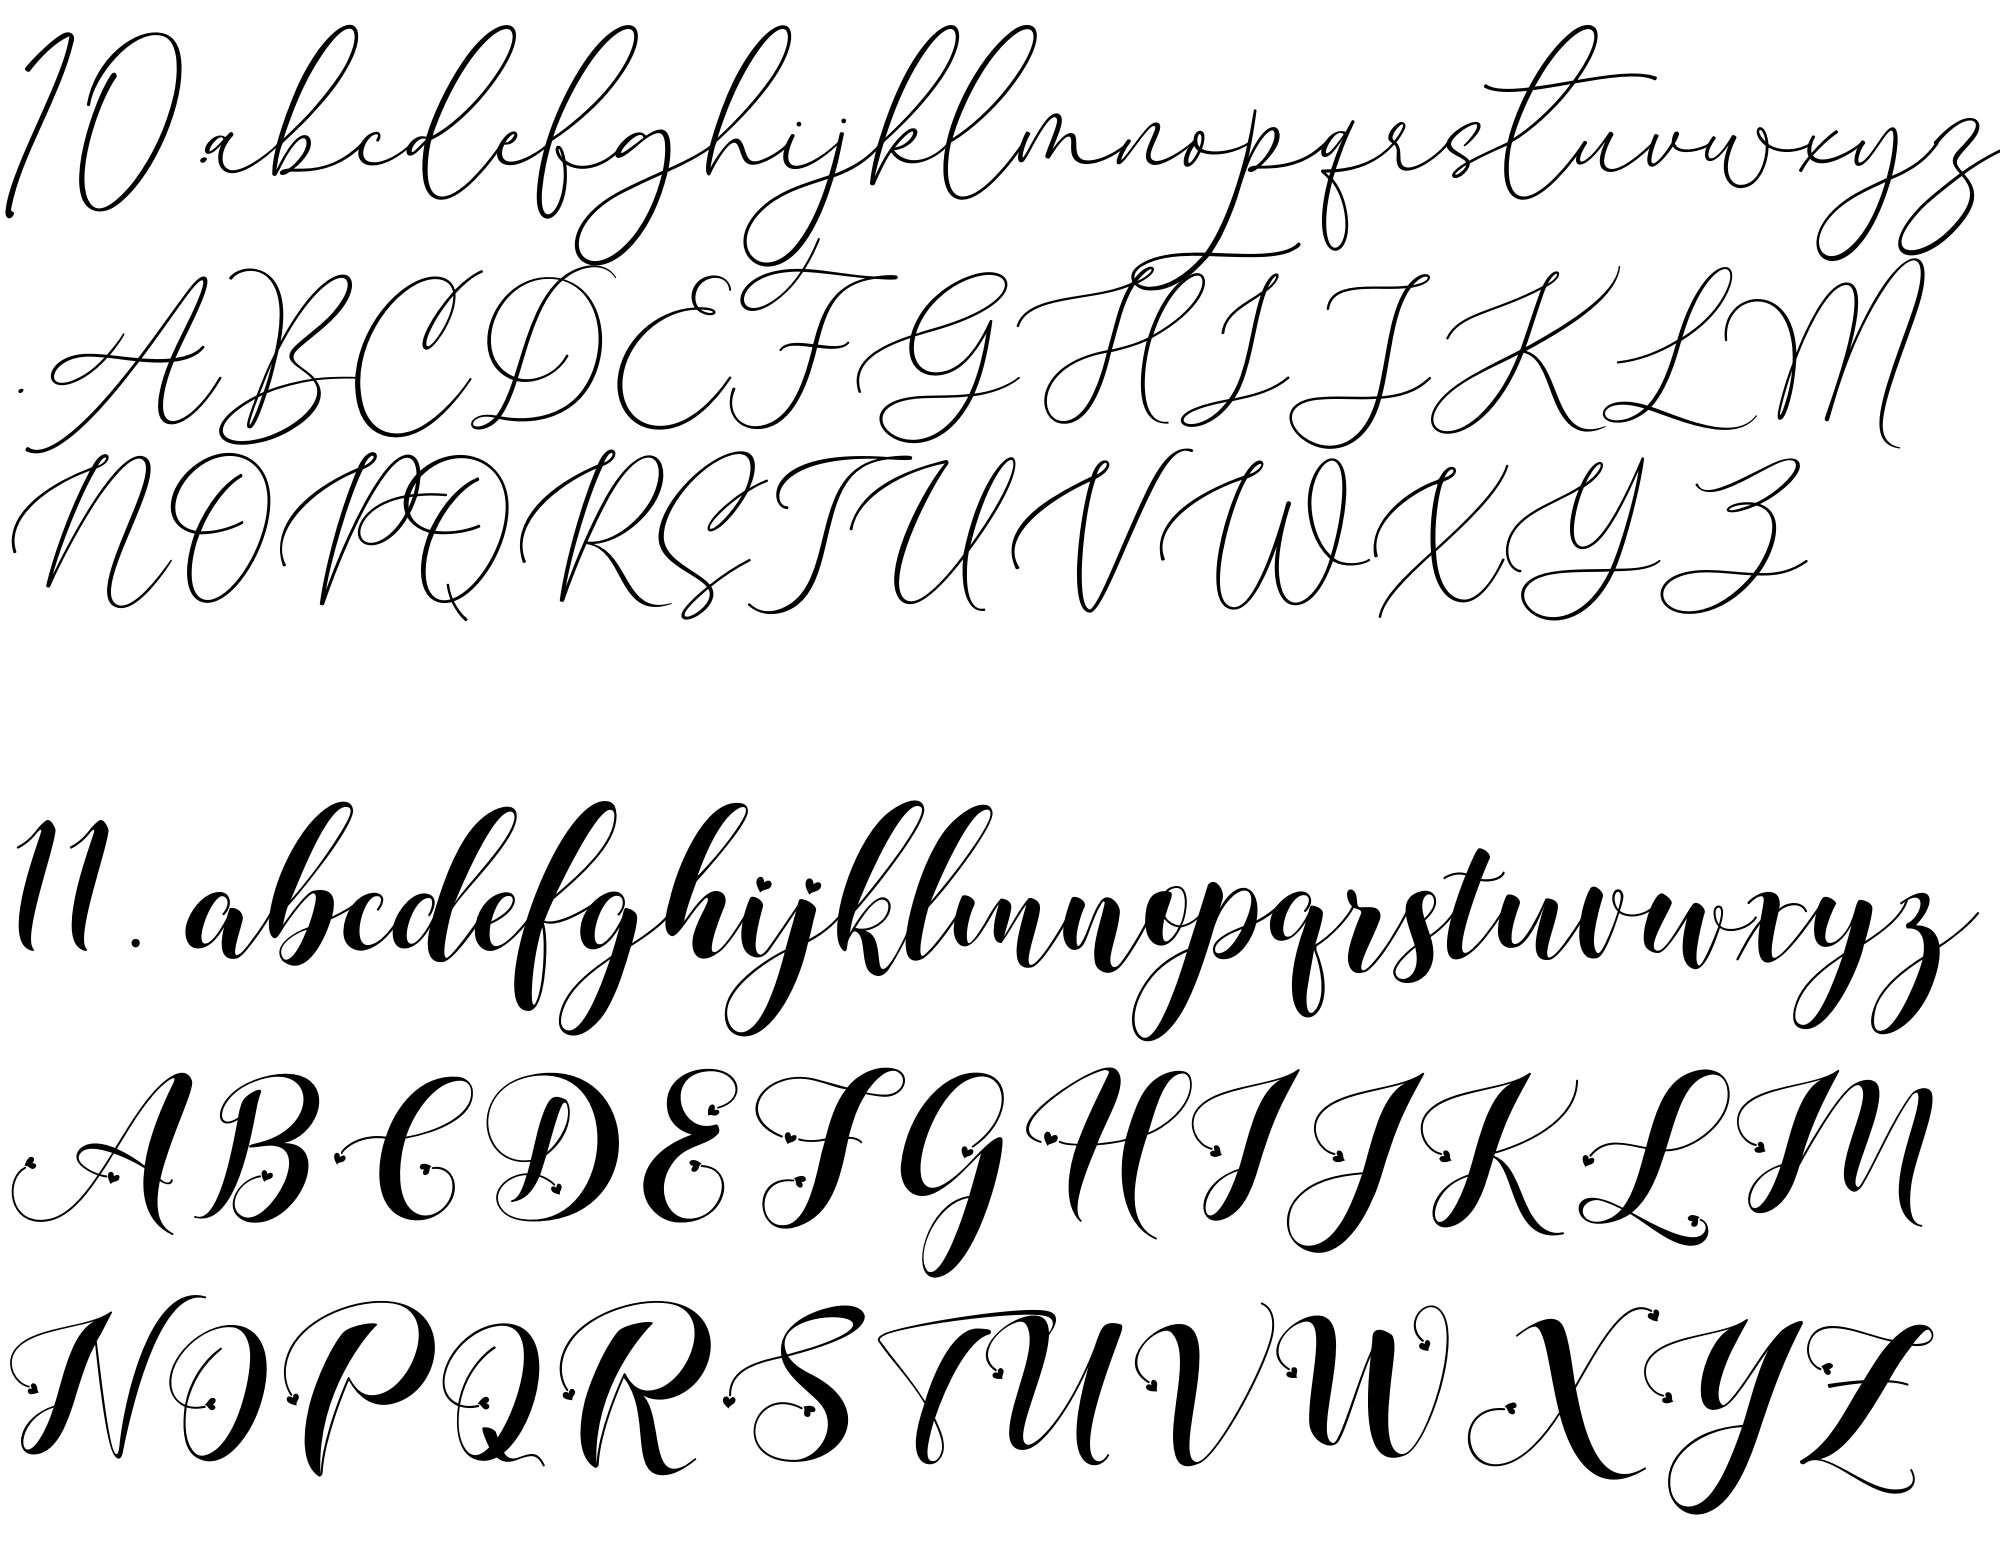 10. abcdefghijklmnopqrstuvwxyz
. ABCDEFGHIJKLM
NOPQRSTUVWXYZ
11. abcdefghijklmnopqrstuvwxyz
ABCDEFGHIJKLM
NOPQRSTUVWXYZ